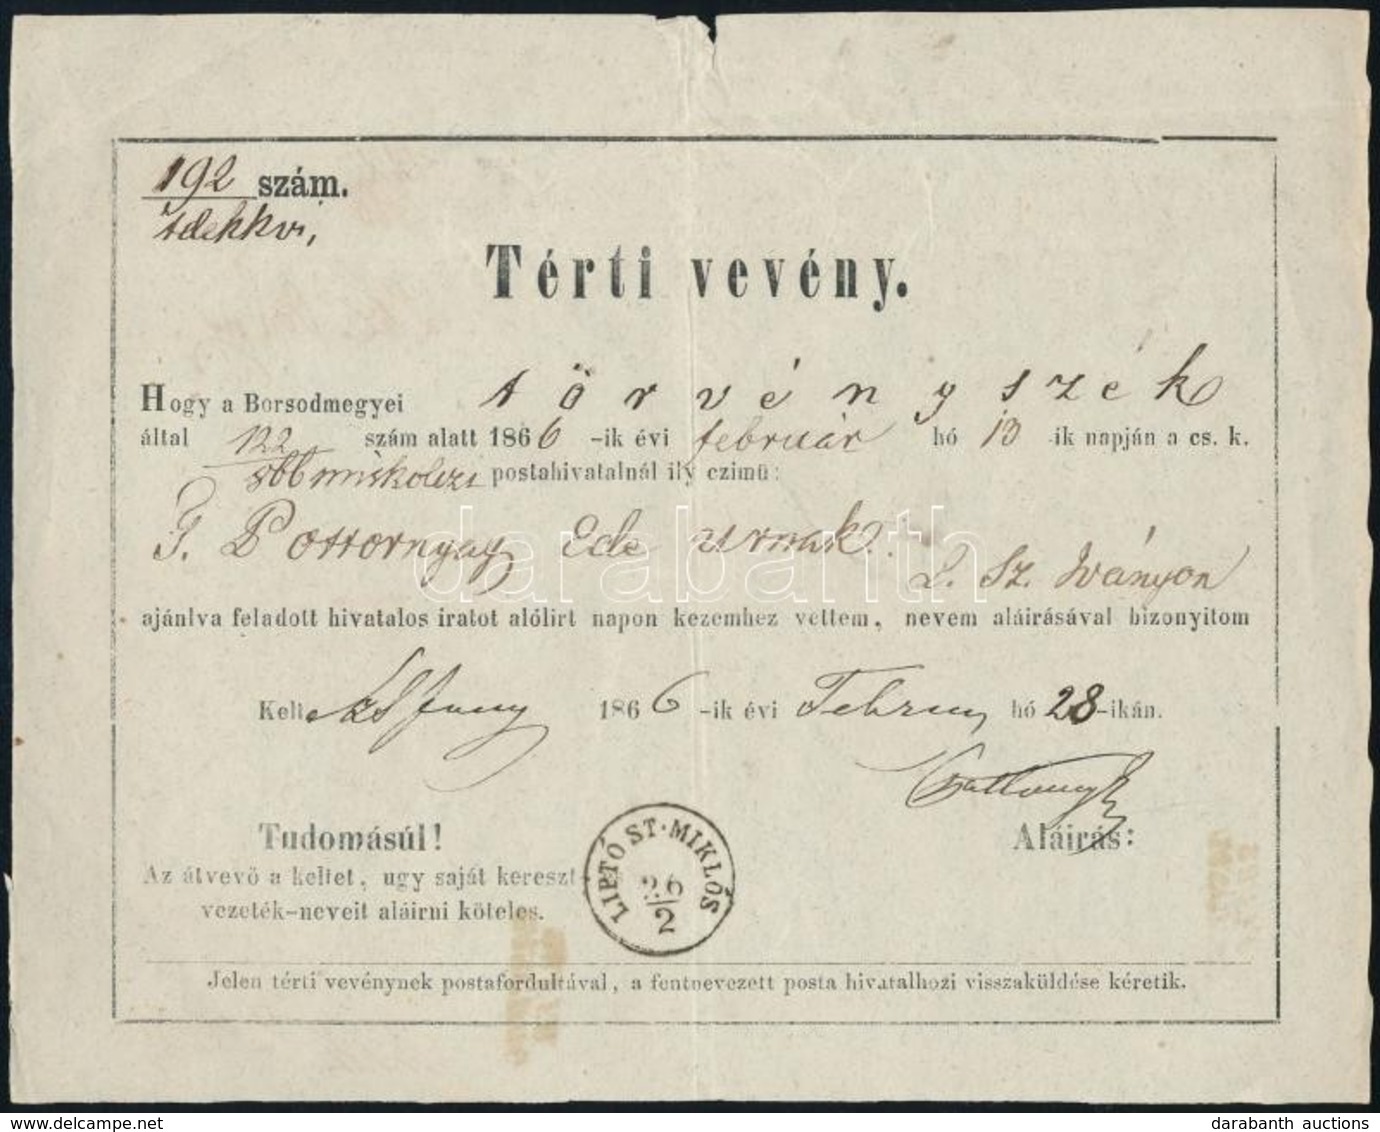 192 szám.
Térti vevény.
Hogy a Borsodmegyei törvényszék
által 122 szám alatt 1866-ik évi február hó 13-ik napján a cs. k.
866 miskolczi postahivatalnál ily czimü:
T. Pottornyay Ede urnak.
L. Sz. Iványon
ajánlva feladott hivatalos iratot alólirt napon kezemhez vettem, nevem aláirásával bizonyitom
Kelt 1866-ik évi Februar hó 28-ikán.
Aláirás:
Tudomásúl!
Az átvevö a keltet, ugy saját kereszt
vezeték-neveit aláirni köteles.
LIPTÓ ST. MIKLÓS
26/2
Jelen térti vevénynek postafordultával, a fentnevezett posta hivatalhozi visszaküldése kéretik.
darabanth
darabanth auctions